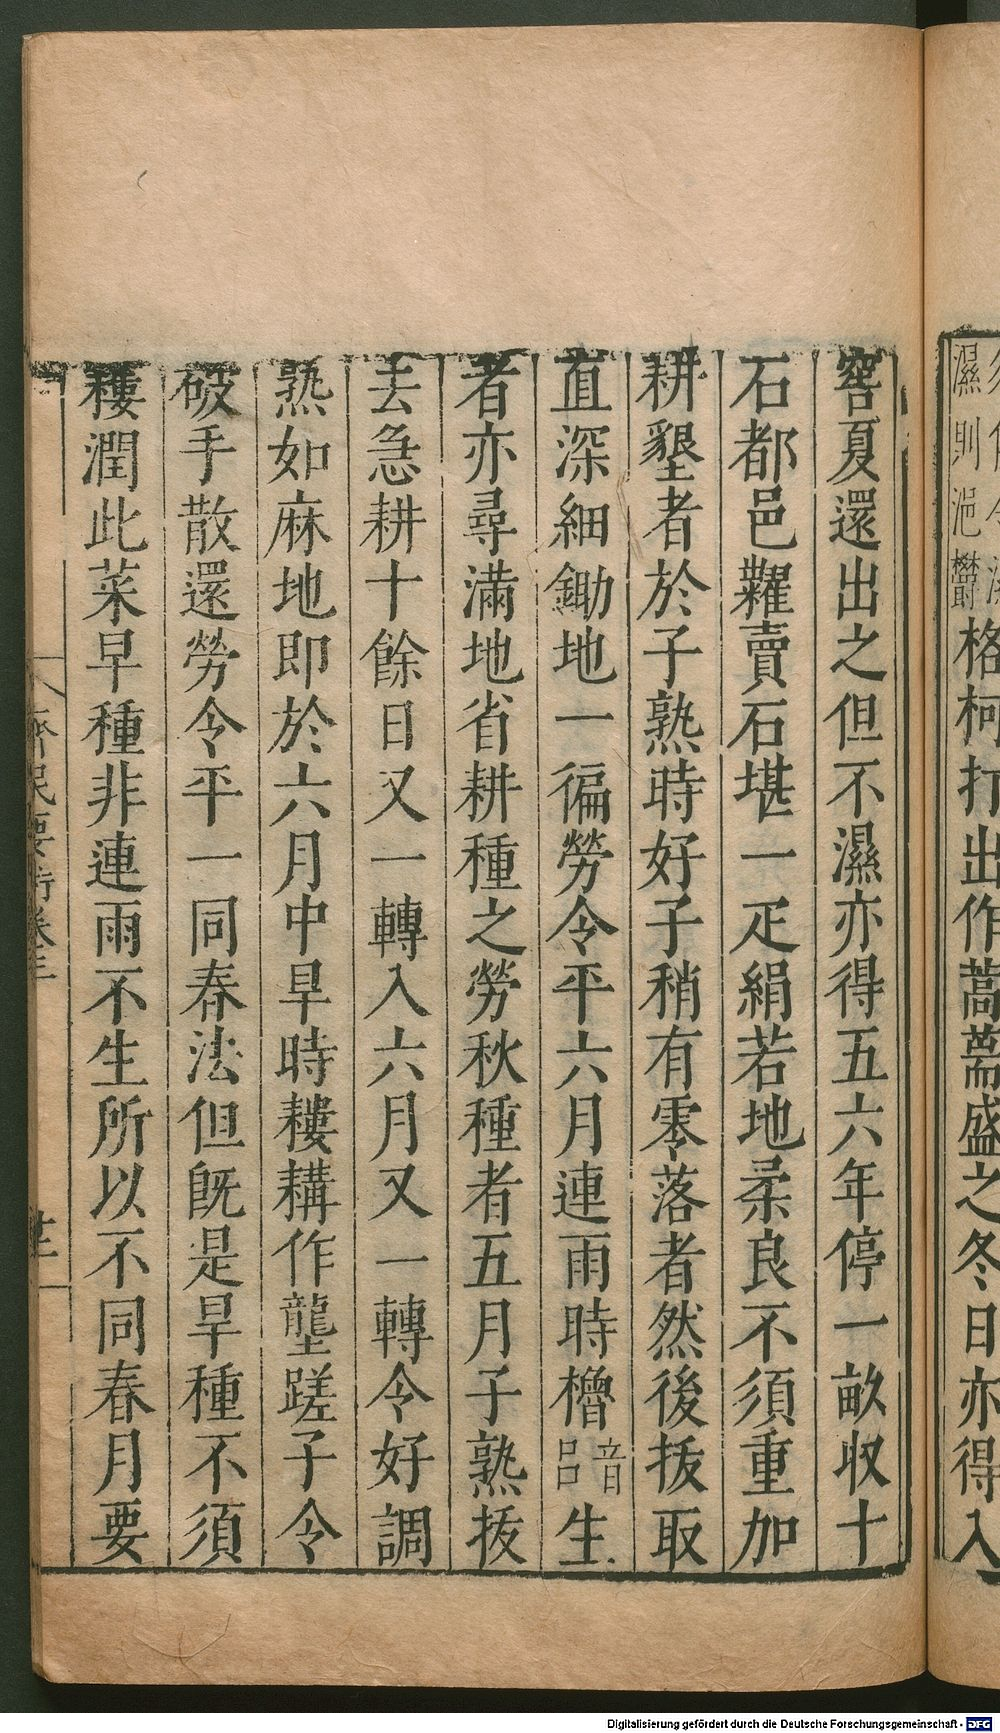 濕則浥鬱格柯打出作蒿萹盛之冬日亦得入
窖夏還出之但不濕亦得五六年停一畝收十
石都邑糶賣石堪一疋絹若地柔良不須重加
耕墾者於子熟時好子稍有零落者然後拔取
直深細鋤地一徧勞令平六月連雨時櫓音呂生
者亦尋滿地省耕種之勞秋種者五月子熟拔
去急耕十餘日又一轉入六月又一轉令好調
熟如麻地即於六月中旱時耬耩作壟蹉子令
破手散還勞令平一同春法但旣是旱種不須
耬潤此菜旱種非連雨不生所以不同春月要
齊民要術卷三
Digitalisierung gefördert durch die Deutsche Forschungsgemeinschaft - DFG